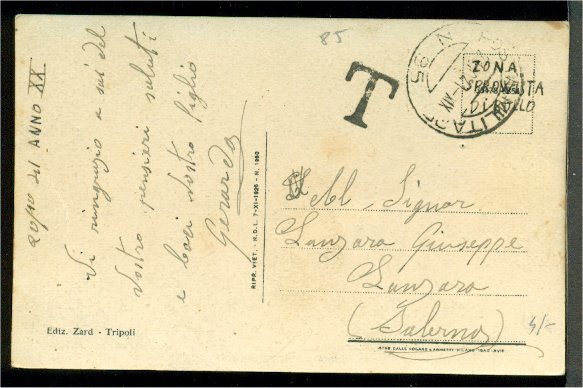 85
T
ZONA
SPROVVISTA
DI BOLLO
MILITARE
95
ANNO XX
Vi ringrazio a voi del
vostro pensiero saluti
e baci vostro figlio
Gerardo
RIPR. VIET. - R.D.L. 7-XI-1925 - N. 1950
Signor
Lanzara Giuseppe
Lanzara
(Salerno)
Ediz. Zard - Tripoli
5/-